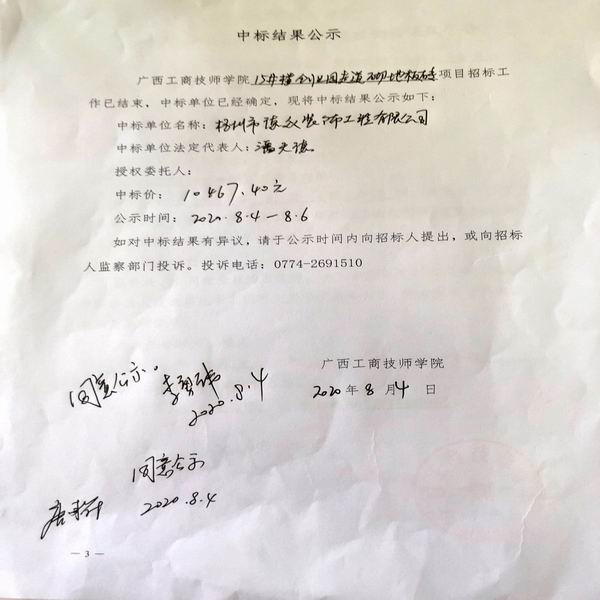 中标结果公示
广西工商技师学院15#楼创业园走道砌地板砖项目招标工
作已结束,中标单位已经确定,现将中标结果公示如下:
中标单位名称:梧州市 装饰工程有限公司
中标单位法定代表人:潘
授权委托人:
中标价: 10467.40元
公示时间: 2020.8.4-8.6
如对中标结果有异议,请于公示时间内向招标人提出,或向招标
人监察部门投诉。投诉电话:0774-2691510
广西工商技师学院
2020年8月4日
同意公示。 李
2020.8.4
同意公示
唐
2020.8.4
— 3 —